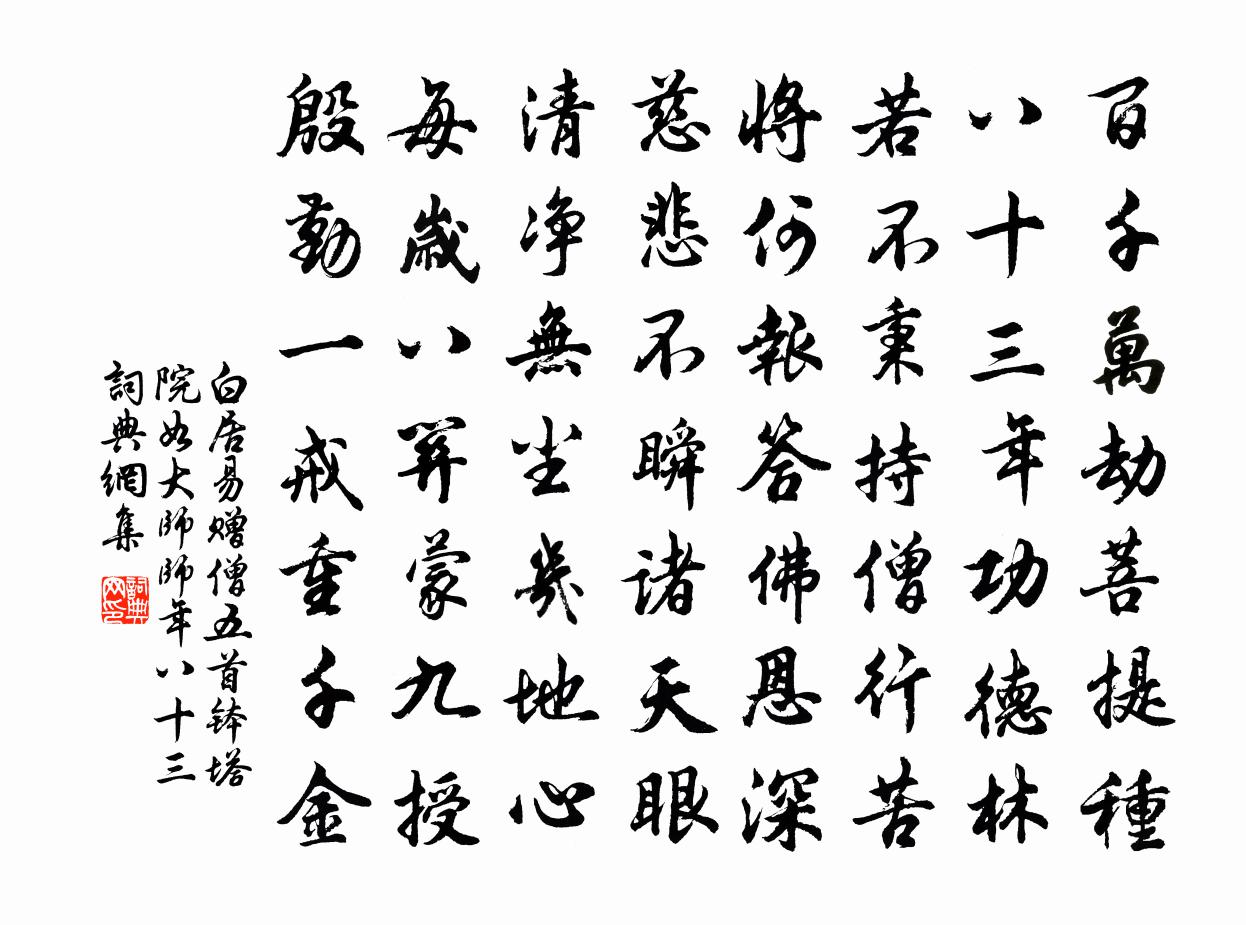 百千萬劫菩提種
八十三年功德林
若不秉持僧行苦
將何報答佛恩深
慈悲不瞬諸天眼
清净無塵幾地心
每歲八關蒙九授
殷勤一戒重千金
白居易赠僧五首鉢塔
院如大師師年八十三
詞典網集
詞典网印